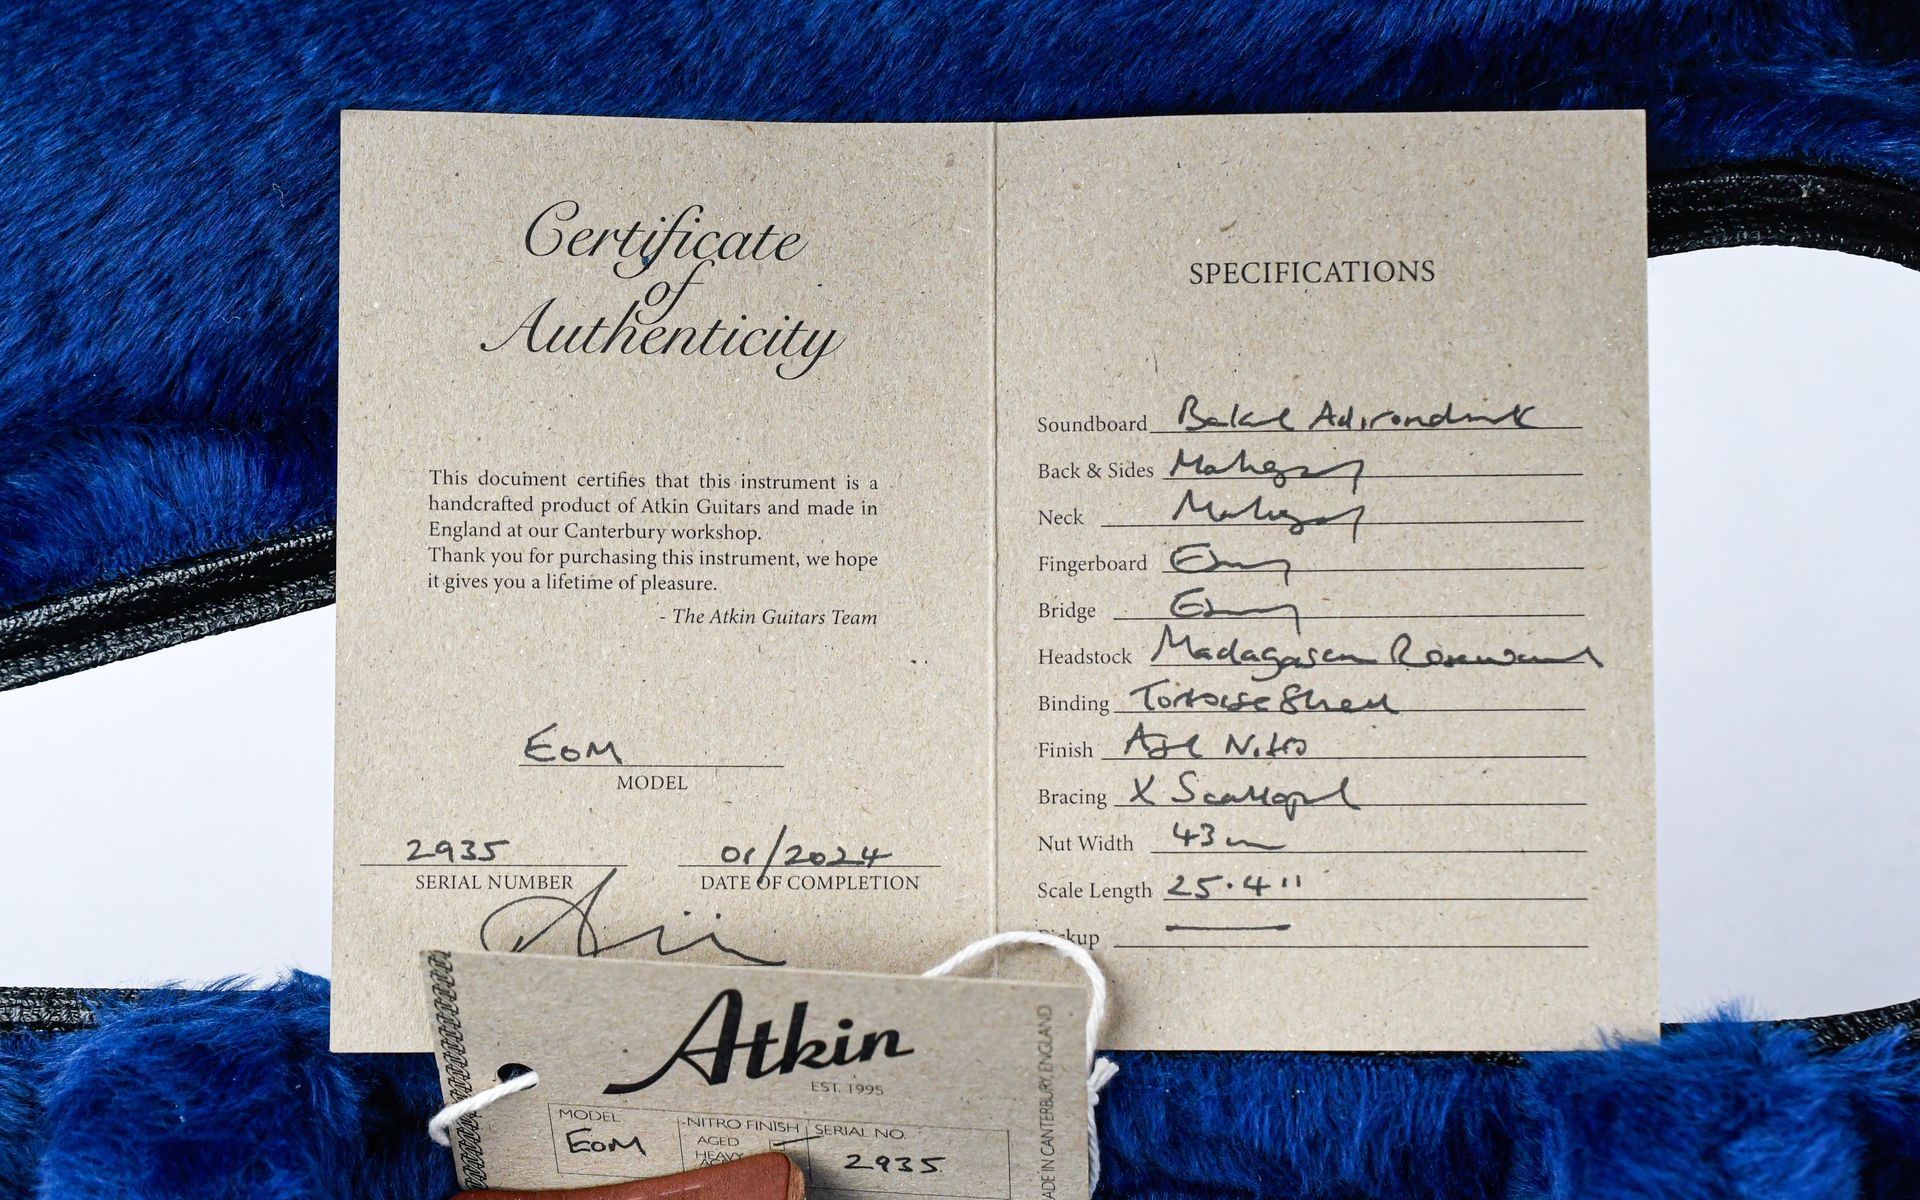 Certificate
of
Authenticity
This document certifies that this instrument is a
handcrafted product of Atkin Guitars and made in
England at our Canterbury workshop.
Thank you for purchasing this instrument, we hope
it gives you a lifetime of pleasure.
- The Atkin Guitars Team
EOM
MODEL
2935
SERIAL NUMBER
01/2024
DATE OF COMPLETION
SPECIFICATIONS
Soundboard Baked Adirondack
Back & Sides Mahogany
Neck Mahogany
Fingerboard Ebony
Bridge Ebony
Headstock Madagascan Rosewood
Binding Tortoise Shell
Finish Aged Nitro
Bracing X Scalloped
Nut Width 43mm
Scale Length 25.4"
Pickup —
Atkin
EST. 1995
MODEL
EOM
NITRO FINISH
AGED
HEAVY
SERIAL NO.
2935
MADE IN CANTERBURY, ENGLAND